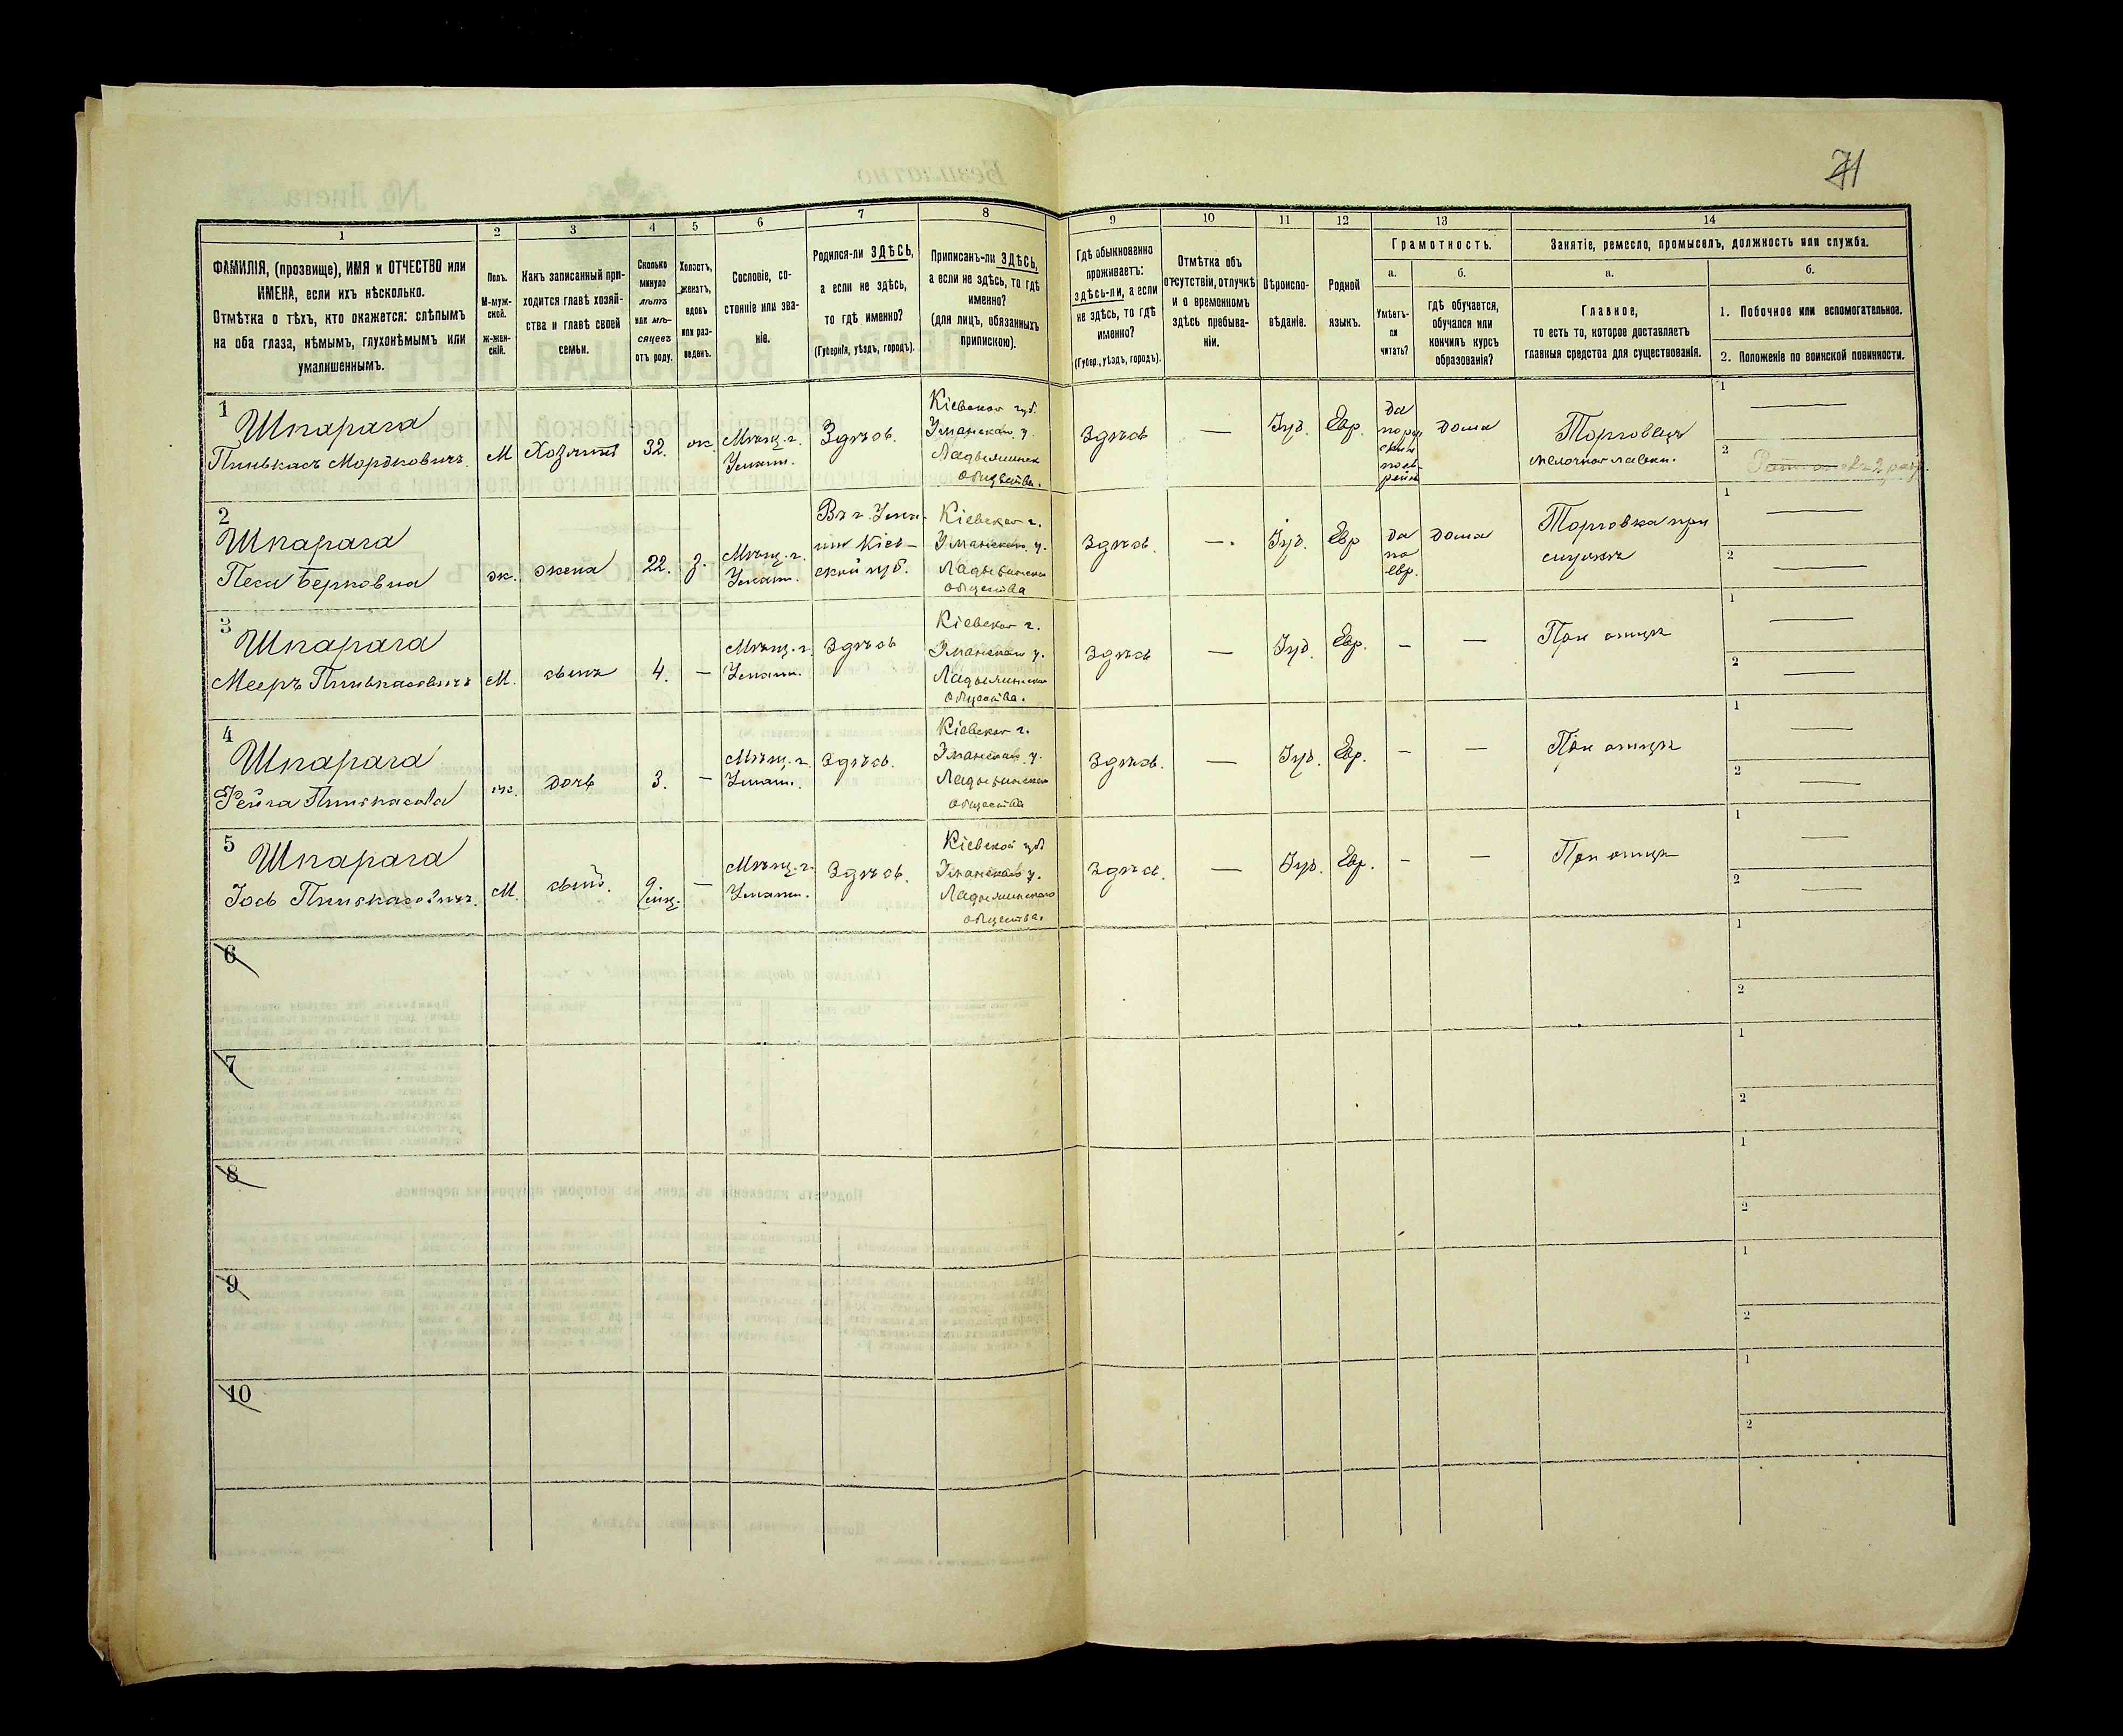 71
1 2 3 4 5 6 7 8 9 10 11 12 13 14
ФАМИЛІЯ, (прозвище), ИМЯ и ОТЧЕСТВО или
ИМЕНА, если ихъ нѣсколько.
Отмѣтка о тѣхъ, кто окажется: слѣпымъ
на оба глаза, нѣмымъ, глухонѣмымъ или
умалишеннымъ.
Полъ.
М-муж-
ской.
Ж-жен-
скій.
Какъ записанный при-
ходится главѣ хозяй-
ства и главѣ своей
семьи.
Сколько
минуло
лѣтъ
или мѣ-
сяцевъ
отъ роду.
Холостъ,
женатъ,
вдовъ
или раз-
веденъ.
Сословіе, со-
стояніе или зва-
ніе.
Родился-ли ЗДѢСЬ,
а если не здѣсь,
то гдѣ именно?
(Губернія, уѣздъ, городъ).
Приписанъ-ли ЗДѢСЬ,
а если не здѣсь, то гдѣ
именно?
(для лицъ, обязанныхъ
припискою).
Гдѣ обыкновенно
проживаетъ:
здѣсь-ли, а если
не здѣсь, то гдѣ
именно?
(Губер., уѣздъ, городъ).
Отмѣтка объ
отсутствіи, отлучкѣ
и о временномъ
здѣсь пребыва-
ніи.
Вѣроиспо-
вѣданіе.
Родной
языкъ.
Грамотность.
а.
Умѣетъ-
ли
читать?
б.
гдѣ обучается,
обучался или
кончилъ курсъ
образованія?
Занятіе, ремесло, промыселъ, должность или служба.
а.
Главное,
то есть то, которое доставляетъ
главныя средства для существованія.
б.
1. Побочное или вспомогательное.
2. Положеніе по воинской повинности.
1
Шпарага
Пинькасъ Мордковичъ.
М
Хозяинъ
32.
ж.
Мѣщ. г.
Умани.
Здѣсь.
Кіевской губ.
Уманскаго у.
общества.
Здѣсь
—
Іуд.
Евр.
да
дома
Торговецъ
мелочной лавки.
1 —
2
2
Шпарага
Песи Берковна
ж.
жена
22.
з.
Мѣщ. г.
Умани.
Въ г. Ума-
ни Кіев-
ской губ.
Кіевской г.
Уманскаго у.
общества
Здѣсь.
—.
Іуд.
Евр
да
по
евр.
дома
Торговка при
1 —
2 —
3
Шпарага
Мееръ Пинькасовичъ
М.
сынъ
4.
—
Мѣщ. г.
Умани.
Здѣсь
Кіевской г.
Уманскаго у.
общества.
Здѣсь
—
Іуд.
Евр.
—
—
При отцѣ
1 —
2 —
4
Шпарага
Рейза Пинькасова
ж.
дочь
3.
—
Мѣщ. г.
Умани.
Здѣсь.
Кіевской г.
Уманскаго у.
общества
Здѣсь.
—
Іуд.
Евр.
—
—
При отцѣ
1 —
2 —
5
Шпарага
Іось Пинькасовичъ.
М.
сынъ.
9
мѣц.
—
Мѣщ. г.
Умани.
Здѣсь.
Кіевской губ
Уманскаго у.
общества.
Здѣсь.
—
Іуд.
Евр.
—
—
При отцѣ
1 —
2 —
6
1
2
7
1
2
8
1
2
9
1
2
10
1
2